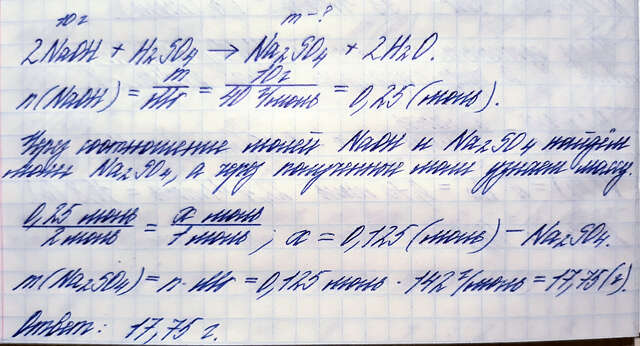 10г m-?
2NaOH + H₂SO₄ → Na₂SO₄ + 2H₂O.
n(NaOH) = m/Mr = 10г/40 г/моль = 0,25 (моль).
Через соотношение молей NaOH и Na₂SO₄ найдём
моли Na₂SO₄, а через полученные моли узнаем массу.
0,25 моль/2 моль = x моль/1 моль; x = 0,125 (моль) – Na₂SO₄.
m(Na₂SO₄) = n · Mr = 0,125 моль · 142 г/моль = 17,75 (г).
Ответ: 17,75 г.